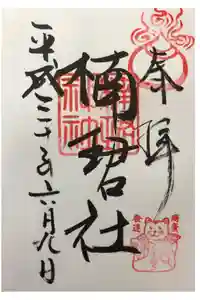 奉拝
楠珺社
平成三十年六月九日